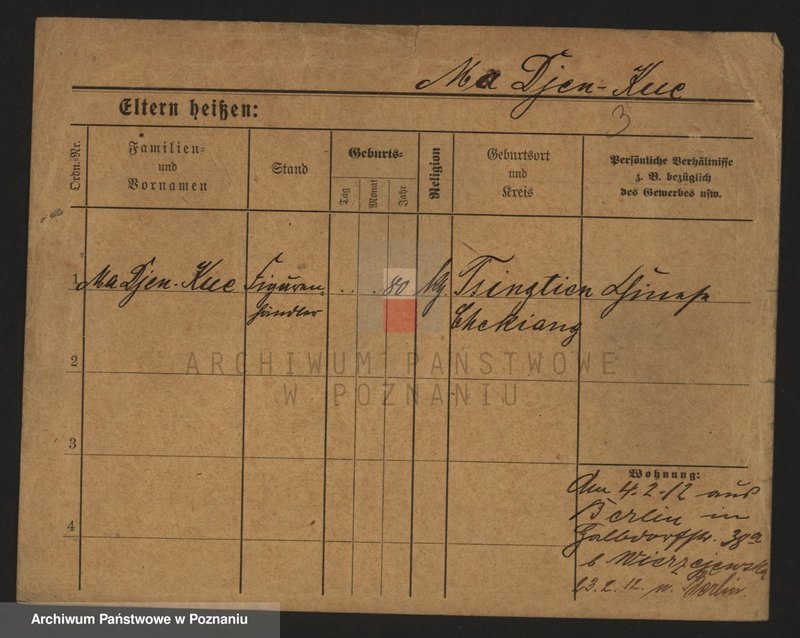 Ma Djen-Kuc
3
Eltern heißen:
Ordn.-Nr.
Familien-
und
Vornamen
Stand
Geburts-
Tag
Monat
Jahr
Religion
Geburtsort
und
Kreis
Persönliche Verhältnisse
z. B. bezüglich
des Gewerbes usw.
1
Ma Djen-Kuc
Figuren-
händler
. . . . 80
Tsingtien
Chekiang
Chinese
ARCHIWUM PAŃSTWOWE
W POZNANIU
2
3
4
Wohnung:
Am 4.2.12 aus
Berlin in
Halbdorfstr. 38a
b Wierzejewska
23.2.12. n. Berlin.
Archiwum Państwowe w Poznaniu